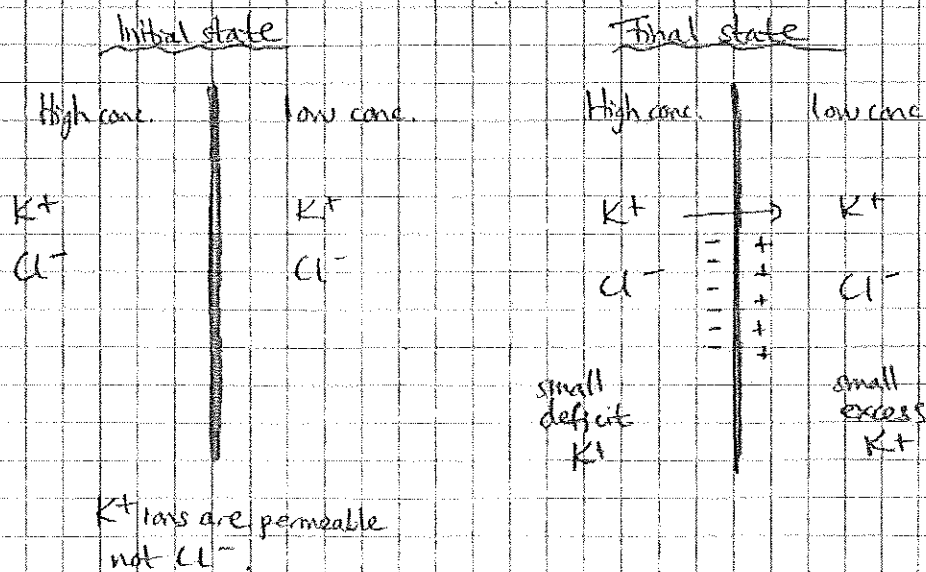 Initial state
High conc.
low conc.
K+
K+
Cl-
Cl-
K+ ions are permeable
not Cl-.
Final state
High conc.
low conc
K+
K+
Cl-
Cl-
- +
- +
- +
- +
- +
small
deficit
K+
small
excess
K+